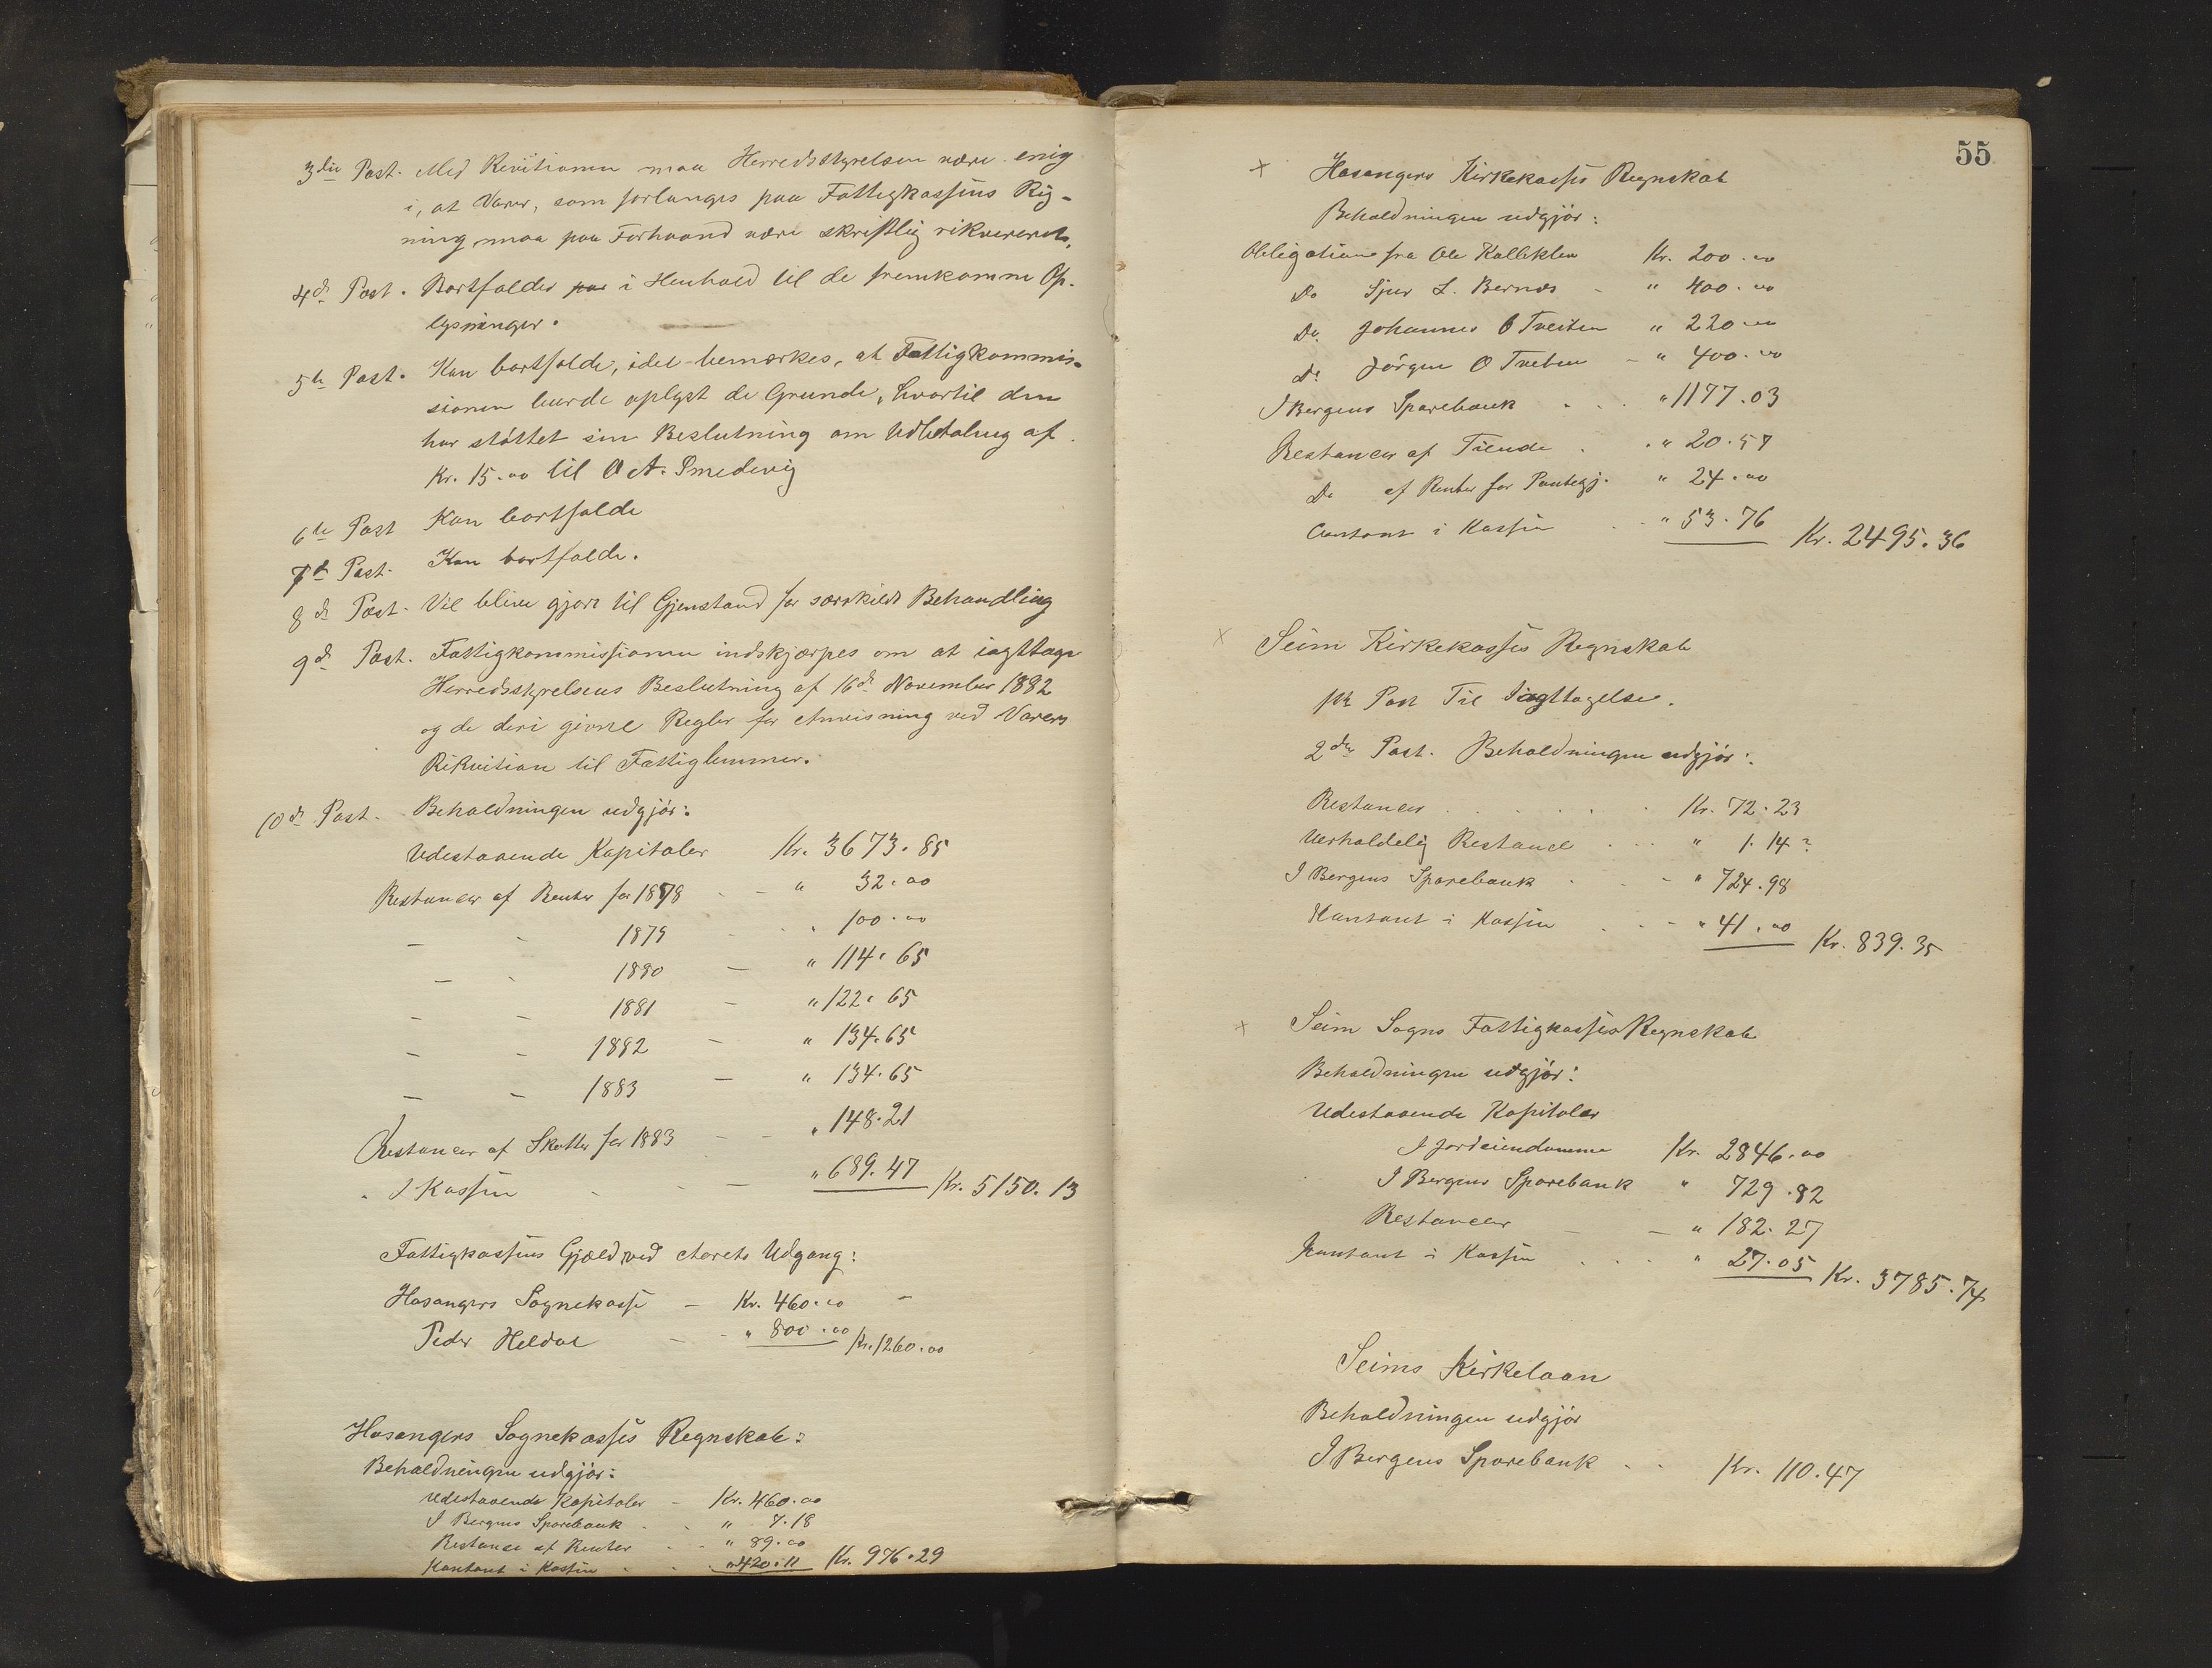 3die Post. Med Revisionen maa Herredsstyrelsen være enig
i, at Varer, som forlanges paa Fattigkassens Reg-
ning maa paa Forhaand være skriftlig rikvereret.
4de Post. Bortfalder i Henhold til de fremkomne Op-
lysninger.
5te Post. Kan bortfalde, idet bemærkes, at Fattigkommis-
sionen burde oplyst de Grunde, hvortil den
har støttet sin Beslutning om Udbetaling af
Kr. 15.00 til O A. Smedevig
6te Post Kan bortfalde
7de Post. Kan bortfalde.
8de Post. Vil blive gjort til Gjenstand for særskildt Behandling
9de Post. Fattigkommissionen indskjærpes om at iagttage
Herredsstyrelsens Beslutning af 16de November 1882
og de deri givne Regler for Anvisning ved Varers
Rikvition til Fattiglemmer.
10de Post. Beholdningen udgjør:
Udestaaende Kapitaler Kr. 3673.85
Restancer af Renter for 1878 - " 32.00
- - 1879 - " 100.00
- - 1880 - " 114.65
- - 1881 - " 122.65
- - 1882 - " 134.65
- - 1883 - " 134.65
Restancer af Skatter for 1883 - - " 148.21
" I Kassen - - " 689.47 Kr. 5150.13
Fattigkassens Gjæld ved Aarets Udgang:
Hosangers Sognekasse - Kr. 460.00 -
Peder Heldal - - " 800.00 Kr. 1260.00
Hosangers Sognekasses Regnskab:
Beholdningen udgjør:
Udestaaende Kapitaler - Kr. 460.00
I Bergens Sparebank - - " 7.18
Restance af Renter - - " 89.00
Kontant i Kassen - - " 420.11 Kr. 976.29
55
x Hosangers Kirkekasses Regnskab
Beholdningen udgjør:
Obligation fra Ole Kallekleiv Kr. 200.00
Do Sjur L. Bernes - " 400.00
Do Johannes O Tveiten " 220.00
Do Jørgen O Tveten - " 400.00
I Bergens Sparebank . . . " 1177.03
Restancer af Tiende . . " 20.57
Do af Renter for Pantegj. " 24.00
Contant i Kassen . . " 53.76 Kr. 2495.36
x Seim Kirkekasses Regnskab
1ste Post Til Iagttagelse.
2den Post. Beholdningen udgjør:
Restancer . . . . . . Kr. 72.23
Uerholdelig Restance . . . " 1.14
I Bergens Sparebank . . - " 724.98
Kontant i Kassen . . - " 41.00 Kr. 839.35
x Seim Sogns Fattigkasses Regnskab
Beholdningen udgjør:
Udestaaende Kapitaler
I Jordeiendomme Kr. 2846.00
I Bergens Sparebank " 729.82
Restancer - - " 182.27
Kontant i Kassen . . . " 27.05 Kr. 3785.74
Seims Kirkelaan
Beholdningen udgjør
I Bergens Sparebank . . Kr. 110.47